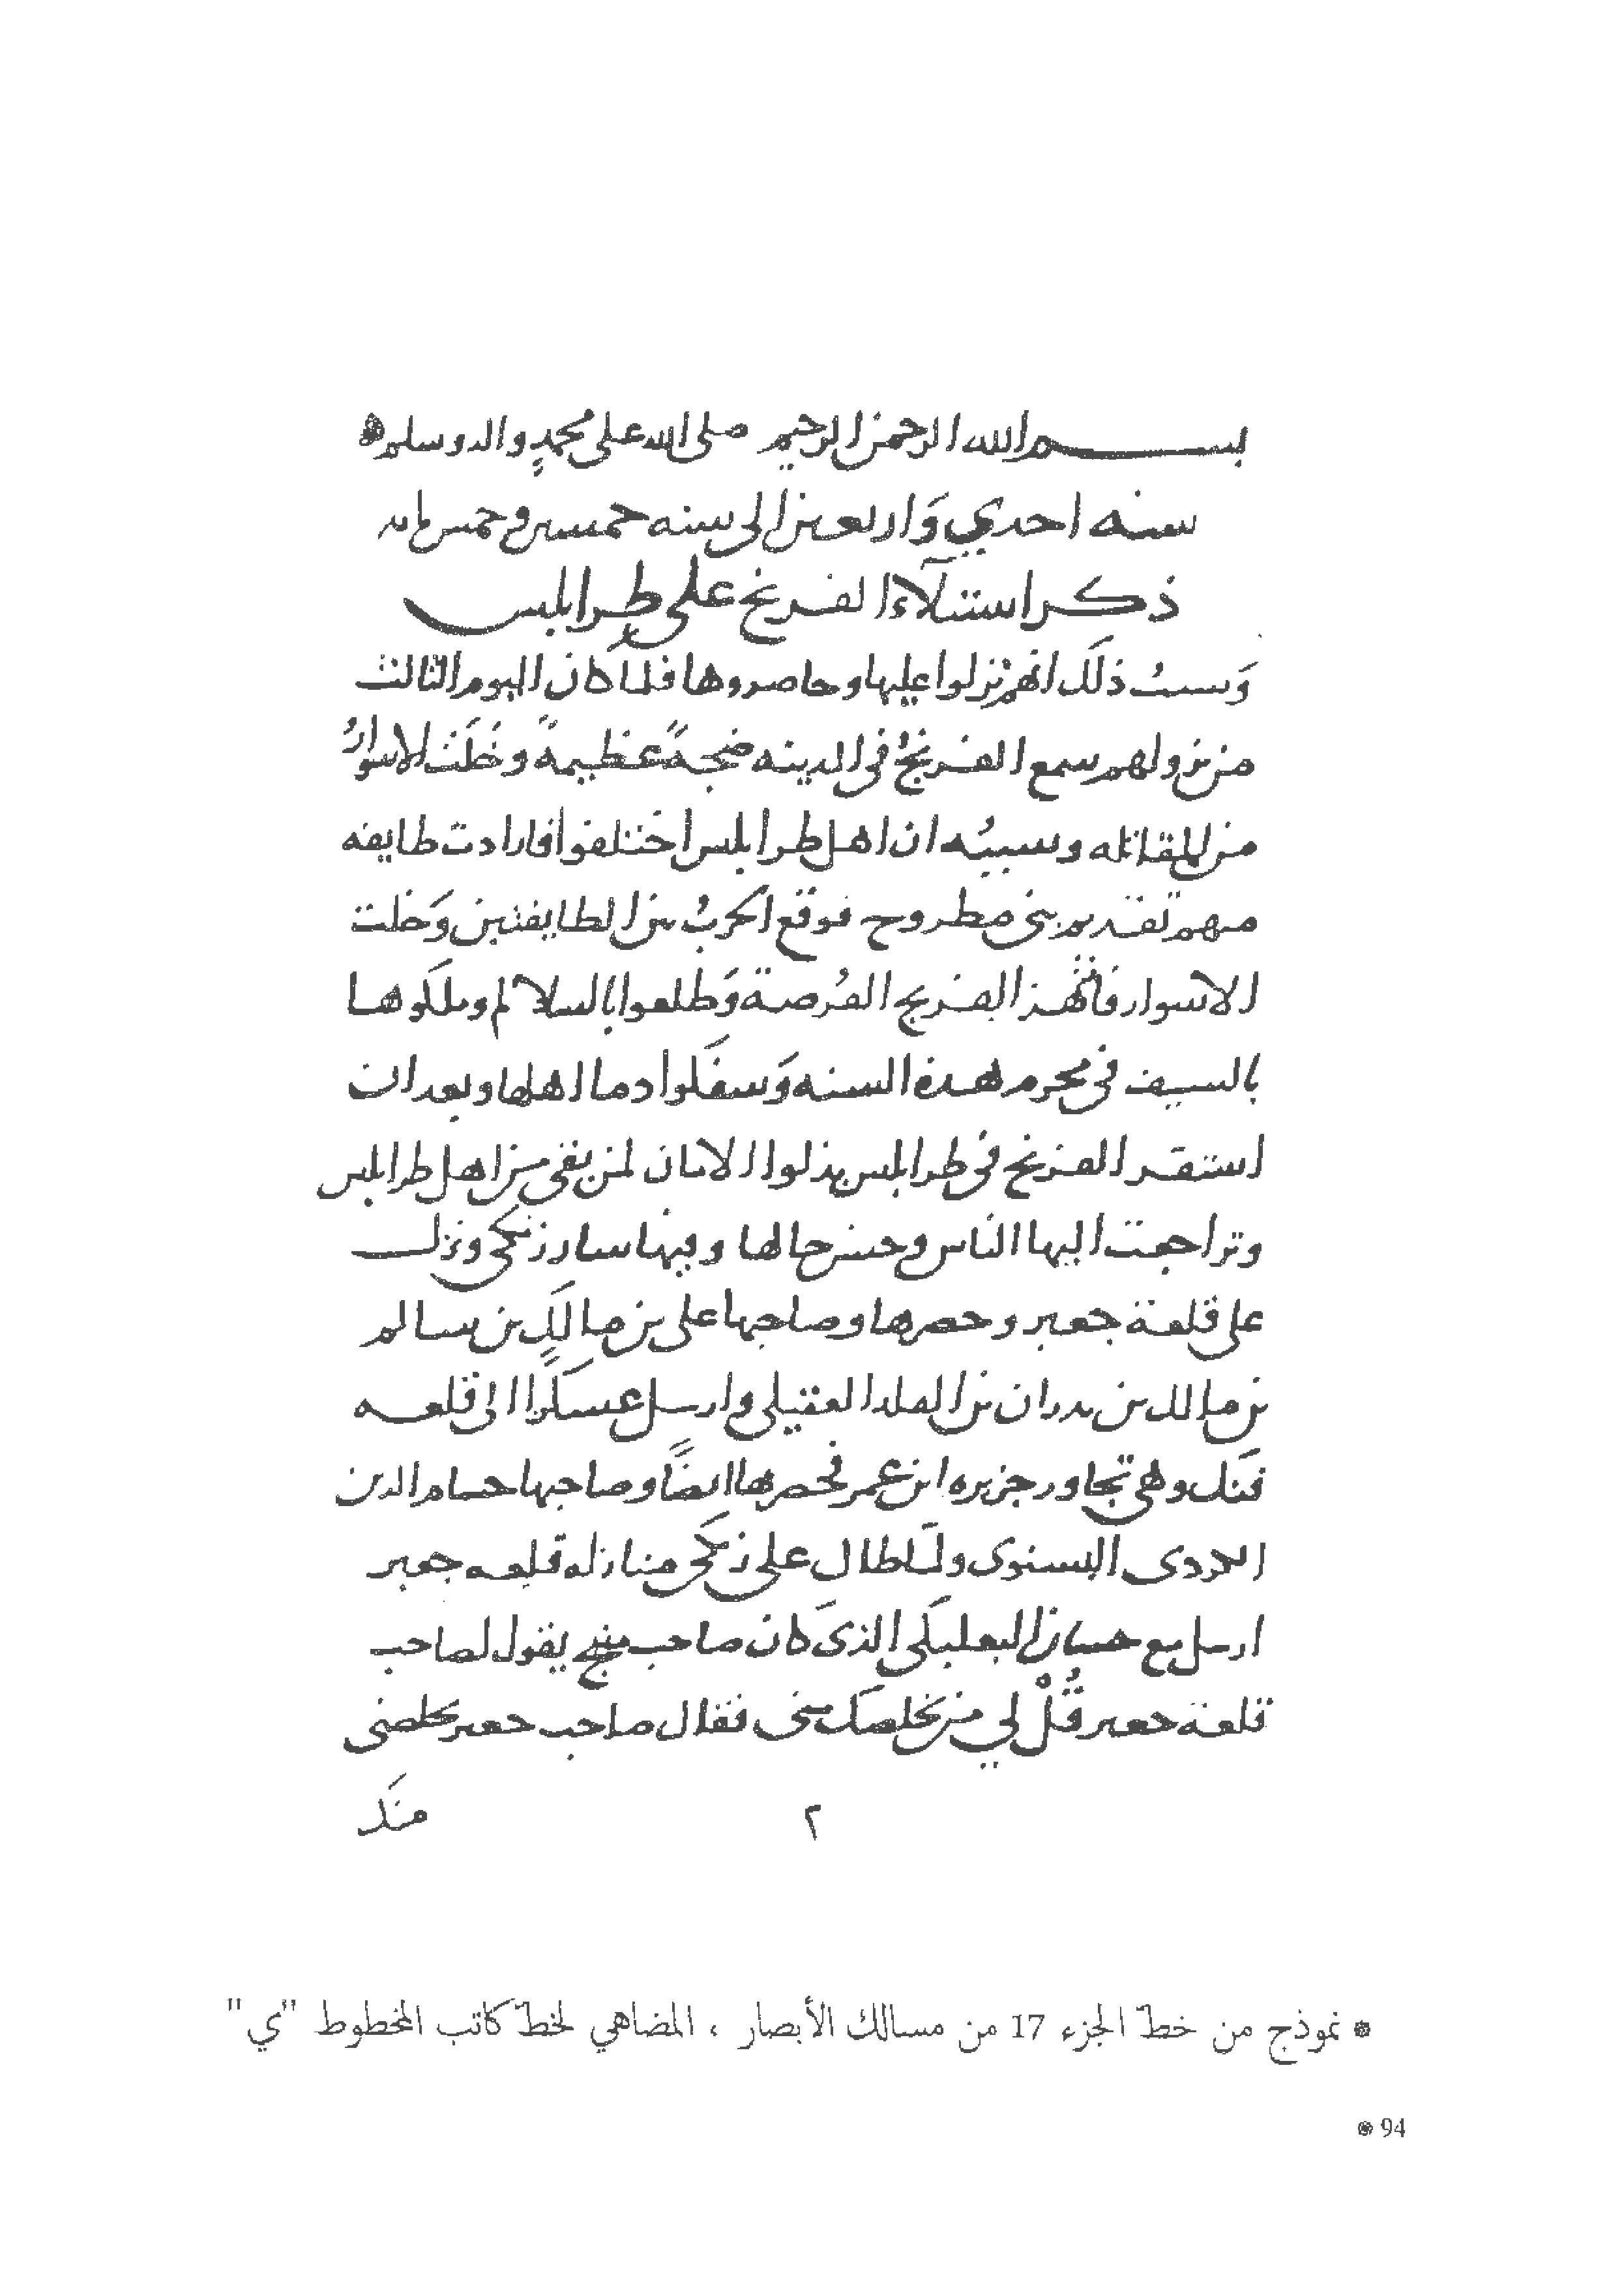 بسم الله الرحمن الرحيم صلى الله على محمدٍ واله وسلم
سنه احدي وَاربعين الى سنه خمسين وخمس مايه
ذكر استيلآء الفرنج على طرابلس
وَسببُ ذلك انهم نزلوا عليها وحاصروها فلما كان اليوم الثالث
من نزولهم سمع الفرنجُ فى المدينه ضجةً عظيمةً وخَلَت الاسوارُ
من المقاتله وسببُه ان اهل طرابلس اختلفوا فارادت طايفه
منهم تقديم بنى مطروح فوقع الحربُ بين الطايفتين وَخلت
الاسوار فانتهز الفرنج الفُرصة وَطلعوا بالسلالم وملكوها
بالسيف فى محرم هذه السنه وَسفكوا دما اهلها وبعد ان
استقر الفرنج فى طرابلس بذلوا الامان لمن بقى من اهل طرابلس
وتراجعت اليها الناس وحسن حالها وفيها سار زنكى ونزل
على قلعة جعبر وحصرها وصاحبها على بن مالك بن سالم
بن مالك بن بدران بن المقلد العقيلى وارسل عسكرًا الى قلعه
فنك وهى تجاور جزيره ابن عمر فحصرها ايضًا وصاحبها حسام الدين
الكردى البشنوى ولما طال على زنكى منازله قلعه جعبر
ارسل مع حسان البعلبكى الذى كان صاحب منبج يقول لصاحب
قلعة جعبر قُلْ لي من يخلصك منى فقال صاحب جعبر يخلصنى
٢ منك
* نموذج من خطّ الجزء 17 من مسالك الأبصار ، المضاهي لخطّ كاتب المخطوط "ي"
94